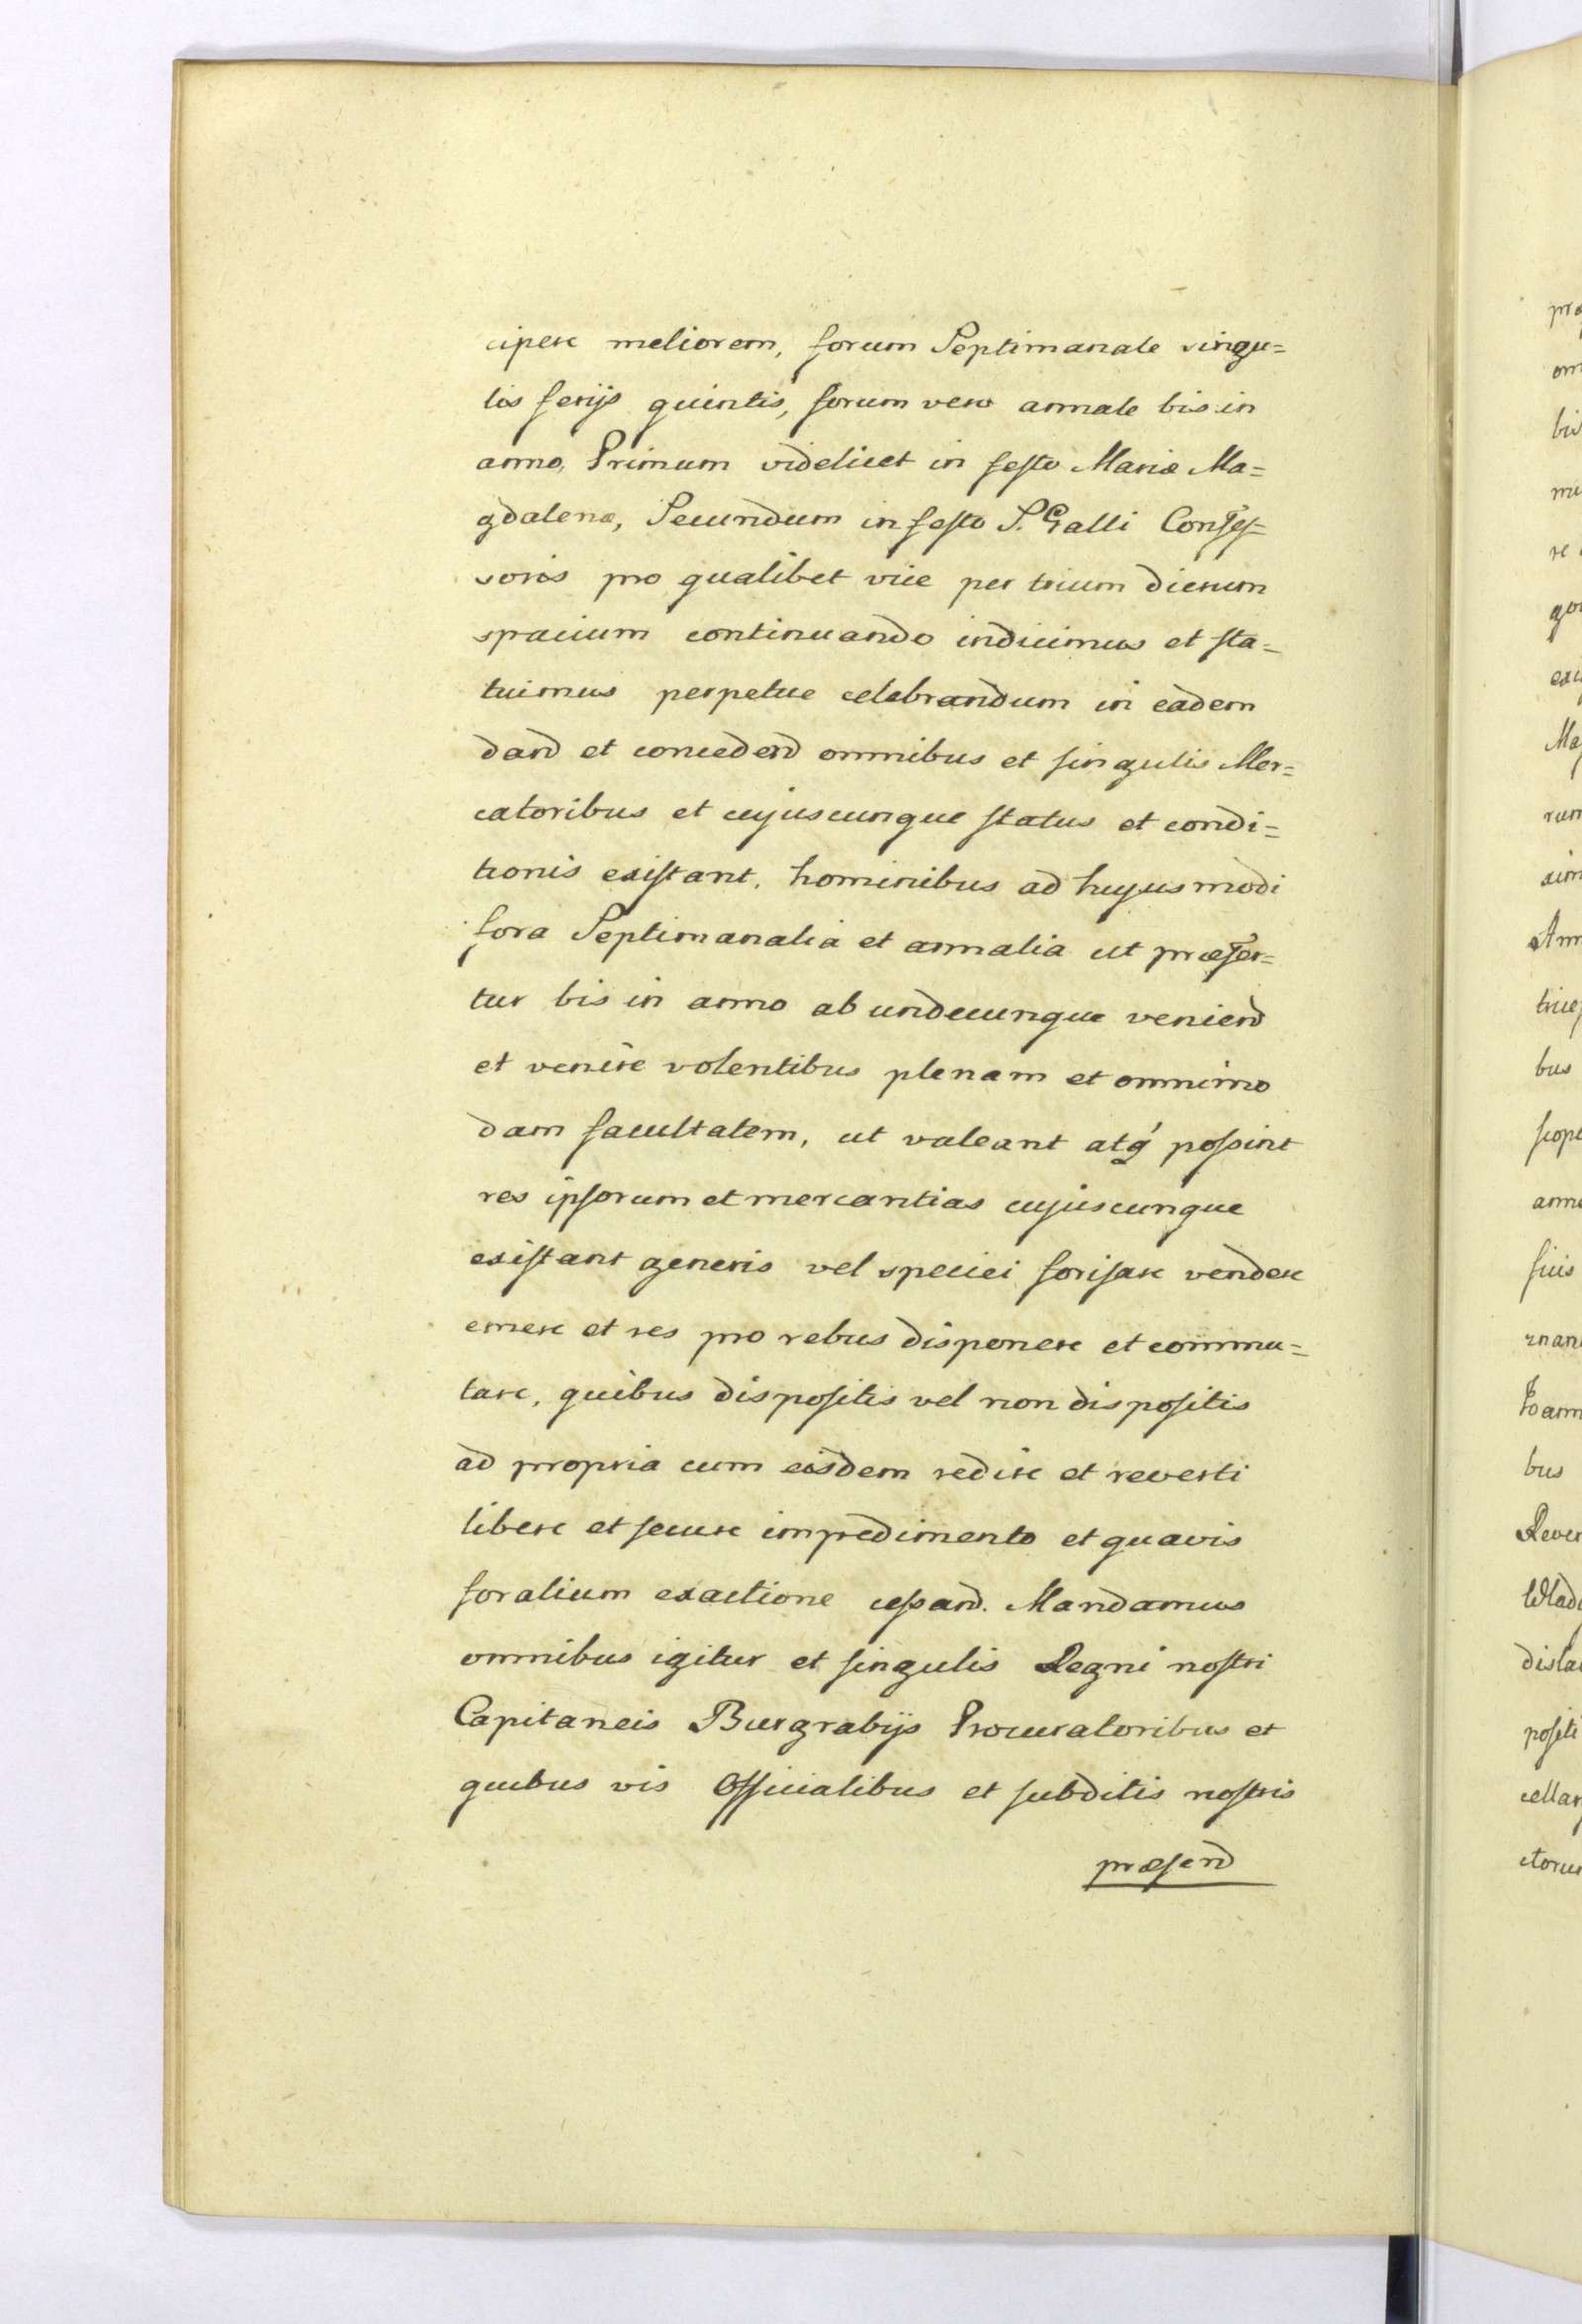 cipere meliorem, forum Septimanale singu=
lis ferijs quintis, forum vero annale bis in
anno, Primum videlicet in festo Mariæ Ma=
gdalenæ, Secundum in festo S. Galli Confes=
soris pro qualibet vice per trium dierum
spacium continuando indicimus et sta=
tuimus perpetue celebrandum in eadem
dand et concedend omnibus et singulis Mer=
catoribus et cujuscunque status et condi=
tionis existant, hominibus ad hujusmodi
fora Septimanalia et annalia ut præfer=
tur bis in anno ab undecunque veniend
et venire volentibus plenam et omnimo
dam facultatem, ut valeant atq́ possint
res ipsorum et mercantias cujuscunque
existant generis vel speciei forisare vendere
emere et res pro rebus disponere et commu=
tare, quibus dispositis vel non dispositis
ad propria cum eisdem redire et reverti
libere et secure impedimento et quavis
foralium exactione cessand. Mandamus
omnibus igitur et singulis Regni nostri
Capitaneis Burgrabijs Procuratoribus et
quibus vis Officialibus et subditis nostris
præsend